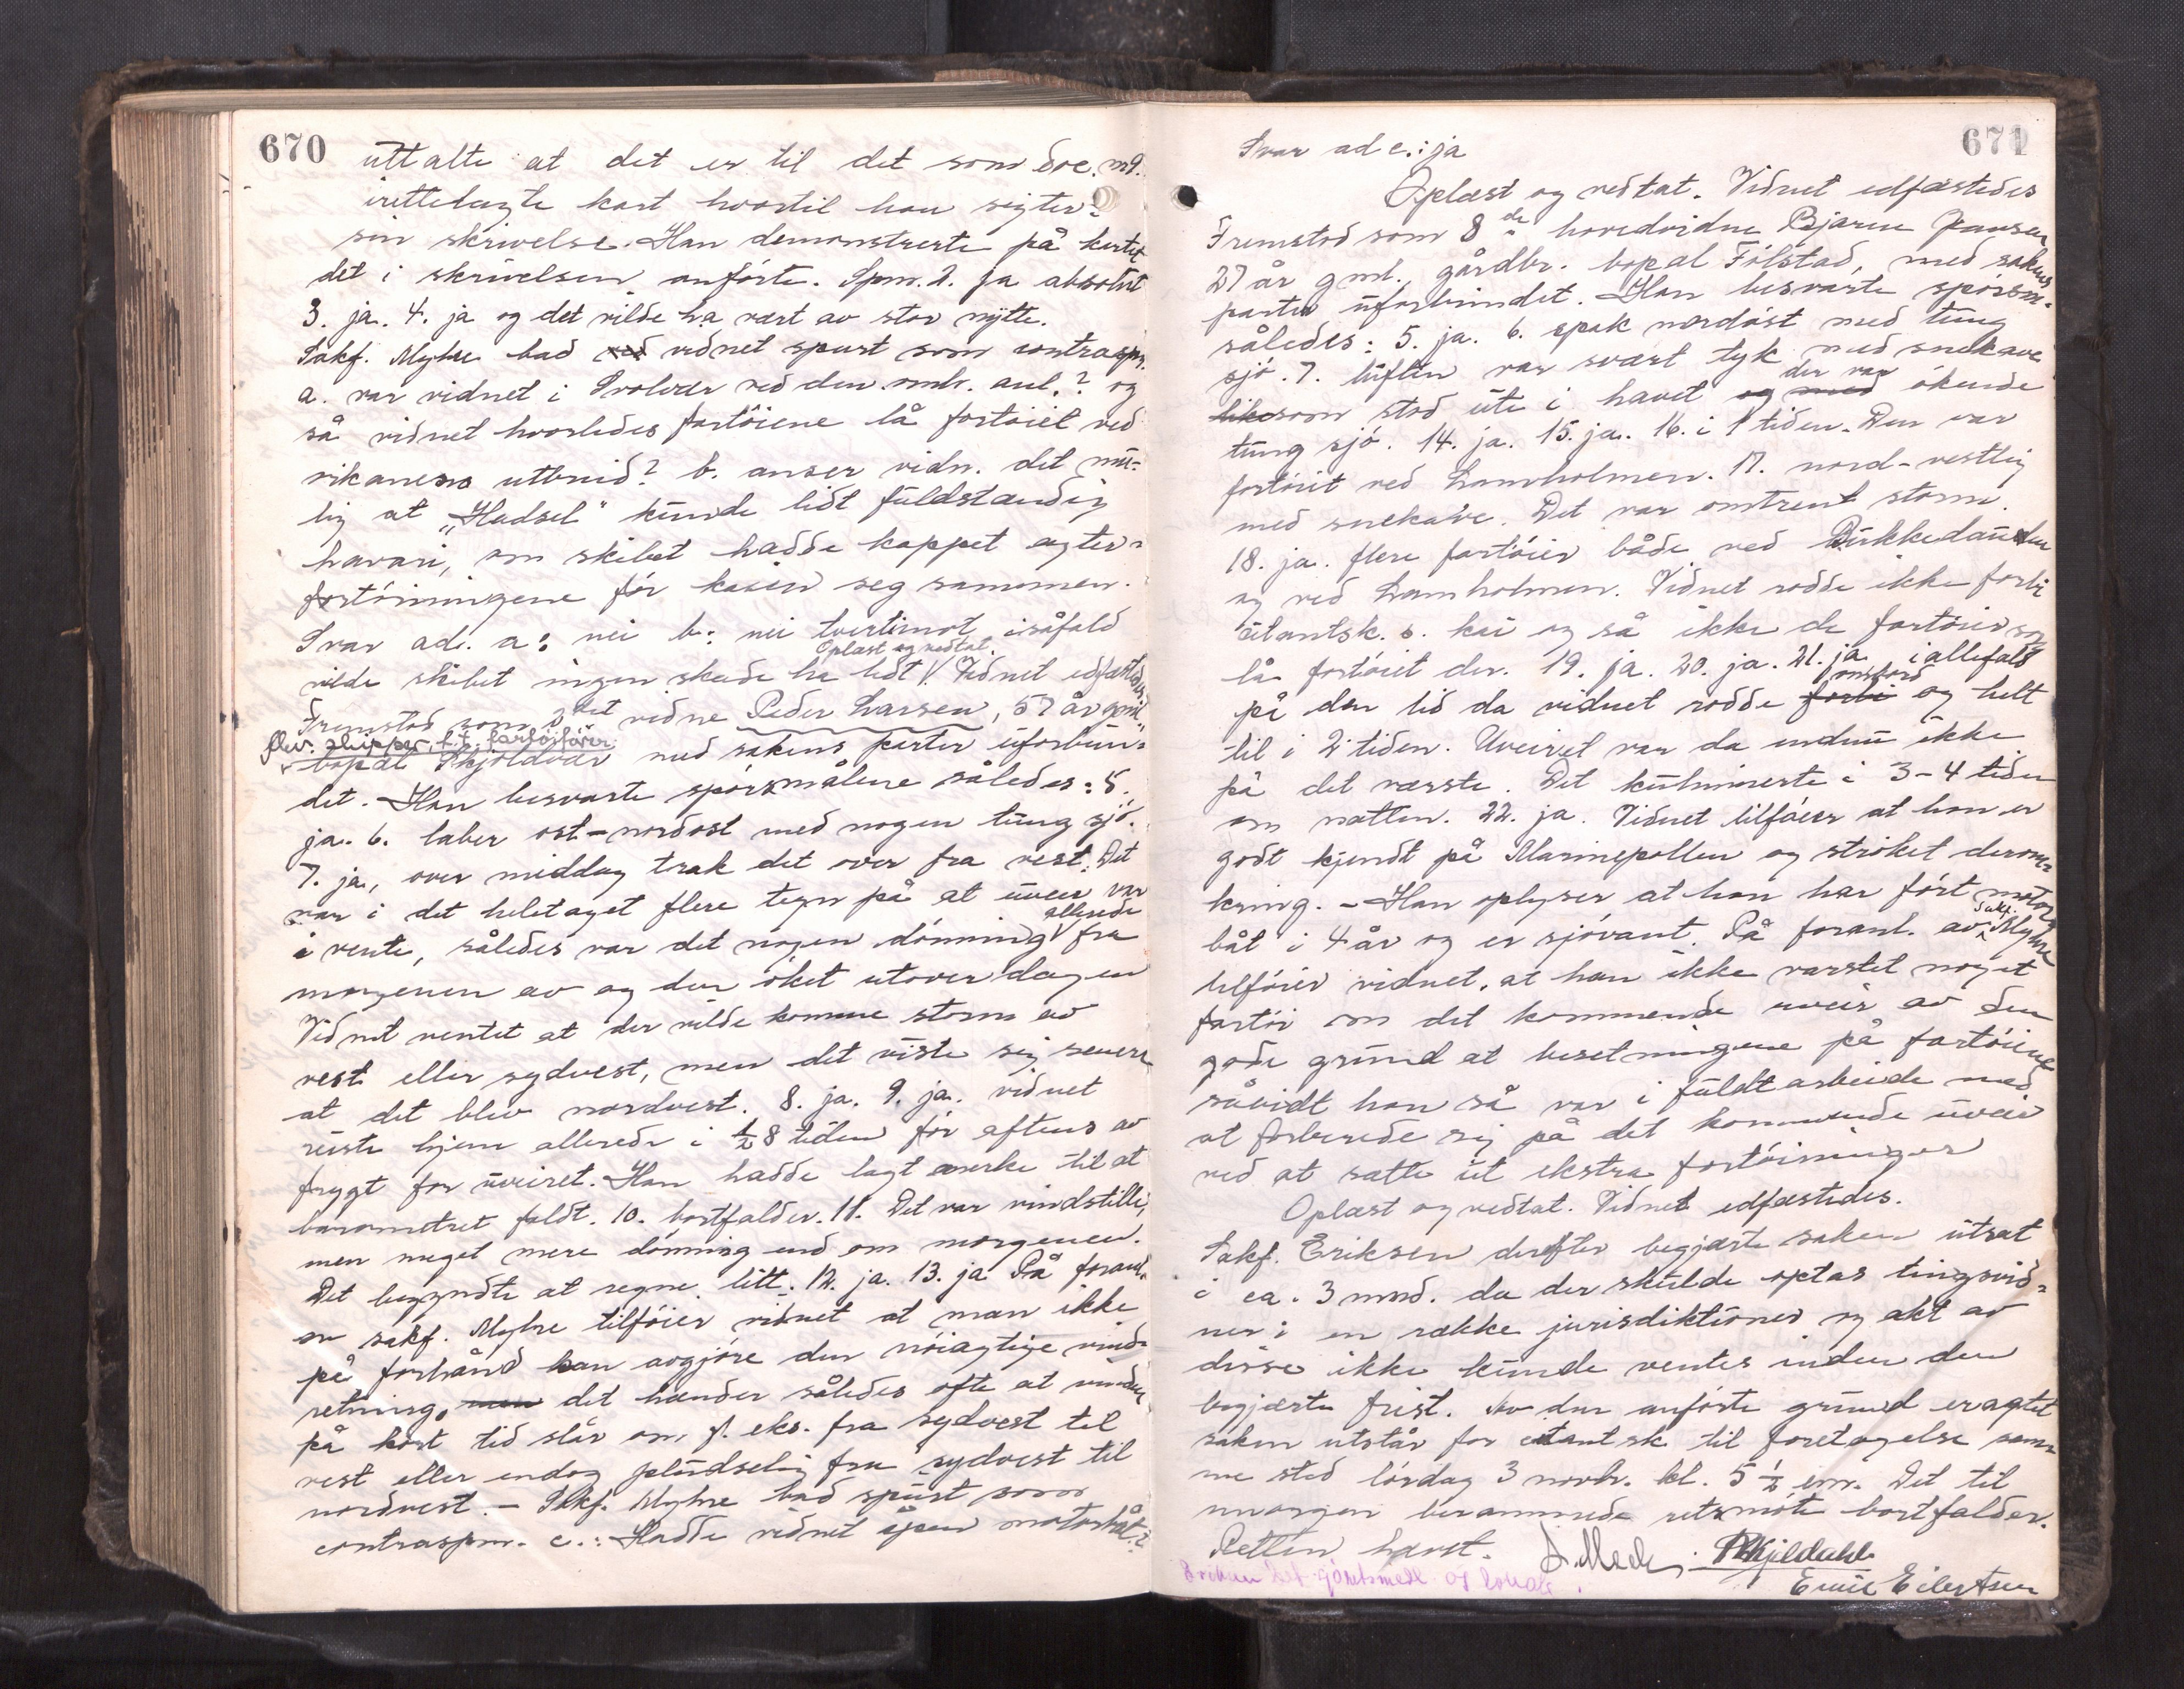 670
uttalte at det er til det som doc. m9.
irettelagte kart hvortil han sigter i
sin skrivelse. Han demonstrerte på kartet
det i skrivelsen anførte. Spm. 2. ja absolut
3. ja. 4. ja og det vilde ha vært av stor nytte.
Sakf. Myhre bad vidnet spurt som contraspm.
a. var vidnet i Svolvær ved den omh. anl.? og
så vidnet hvorledes fartøiene lå fortøiet ved
orkanens utbrud? b. anser vidn. det mu-
lig at "Hadsel" kunde lidt fuldstændig
havari, om skibet hadde kappet agter-
fortøiningene før kaien seg sammen.
Svar ad. a: nei b: nei tvertimot isåfald
vilde skibet ingen skade ha lidt. Oplæst og vedtat. Vidnet edfæstedes
Fremstod som 7det vidne Peder Larsen, 57 år gml
flev. skipper, f.t. fartøifører
bopæl Skjoldvær med sakens parter uforbun-
det. Han besvarte spørsmålene således: 5.
ja. 6. laber ost-nordost med nogen tung sjø.
7. ja, over middag trak det over fra vest. Det
var i det heletaget flere tegn på at uveir var
i vente, således var det nogen dønning allerede fra
morgenen av og den øket utover dagen
Vidnet ventet at der vilde komme storm av
vest eller sydvest, men det viste sig senere
at det blev nordvest. 8. ja. 9. ja. vidnet
reiste hjem allerede i ½ 8 tiden før aftens av
frygt for uveiret. Han hadde lagt merke til at
barometret faldt. 10. bortfalder. 11. Det var vindstille,
men meget mere dønning end om morgenen.
Det begyndte at regne litt. 12. ja. 13. ja På foranl.
av sakf. Myhre tilføier vidnet at man ikke
på forhånd kan avgjøre den nøiagtige vind-
retning, men det hænder således ofte at vinden
på kort tid slår om, f. eks. fra sydvest til
vest eller endog pludselig fra sydvest til
nordvest. - Sakf. Myhre bad spurt som
contraspm. c.: Hadde vidnet åpen motorbåt?
671
Svar ad c.: ja
Oplæst og vedtat. Vidnet edfæstedes
Fremstod som 8de hovedvidne Bjarne Jansen
27 år gml. gårdbr. bopæl Følstad, med sakens
parter uforbundet. Han besvarte spørsm.
således: 5. ja. 6. spak nordøst med tung
sjø. 7. luften var svært tyk med snekave
likesom stod ute i havet og med der var økende
tung sjø. 14. ja. 15. ja. 16. i 1 tiden. Den var
fortøiet ved Lamholmen. 17. nord-vestlig
med snekave. Det var omtrent storm.
18. ja. flere fartøier både ved
og ved Lamholmen. Vidnet rodde ikke forbi
citantsk. s. kai og så ikke de fartøier som
lå fortøiet der. 19. ja. 20. ja. 21. ja iallefald
på den tid da vidnet rodde forbi ombord og helt
til i 2 tiden. Uveiret var da endnu ikke
på det værste. Det kulminerte i 3-4 tiden
om natten. 22. ja. Vidnet tilføier at han er
godt kjendt på Marinepollen og strøket derom-
kring. - Han oplyser at han har ført motor-
båt i 4 år og er sjøvant. På foranl. av Sakf. Myhre
tilføier vidnet, at han ikke varslet noget
fartøi om det kommende uveir av den
gode grund at besetningene på fartøiene
såvidt han så var i fuldt arbeide med
at forberede sig på det kommende uveir
ved at sætte ut ekstra fortøininger
Oplæst og vedtat. Vidnet edfæstedes.
Sakf. Eriksen derefter begjærte saken utsat
i ca. 3 mnd. da der skulde optas tingsvid-
ner i en række jurisdiktioner og akt av
disse ikke kunde ventes inden den
begjærte frist. Av den anførte grund eragtet
saken utstår for citantsk til foretagelse sam-
me sted lørdag 3 novbr. kl. 5 ½ em. Det til
imorgen berammede retsmøte bortfalder.
Retten hævet.
Emil Eilertsen